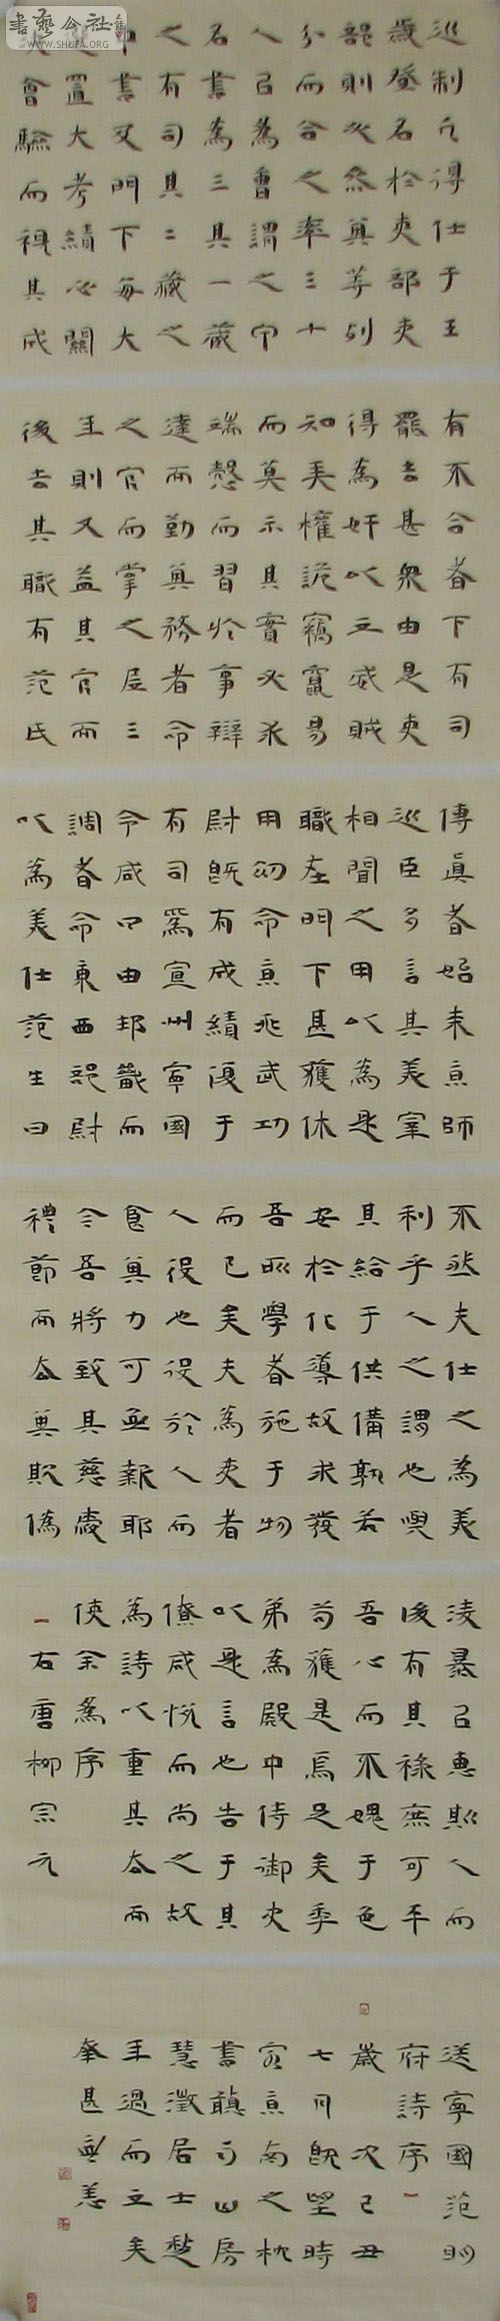 書藝公社
WWW.SHUFA.ORG
近制凡得仕于王
歲登名於吏部吏
部則必參其等列
分而合之率三十
人以為曹謂之甲
名書為三其一藏
之有司其二藏之
中書及門下每大
選置大考績必關
決會驗而視其成
有不合者下有司
罷去甚眾由是吏
得為奸以立威賊
知弄權詭竊竄易
而莫示其實必求
端愨而習於事辯
達而勤其務者命
之官而掌之居三
年則又益其官而
後去其職有范氏
傳真者始來京師
近臣多言其美宰
相聞之用以為是
職在門下甚獲休
用初命京兆武功
尉既有成績復于
有司為宣州寧國
令咸曰由邦畿而
調者命東西部尉
以為美仕范生曰
不然夫仕之為美
利乎人之謂也與
其給于供備孰若
安於化導故求發
吾所學者施于物
而已矣夫為吏者
人役也役於人而
食其力可無報耶
今吾將致其慈愛
禮節而去其欺偽
凌暴以惠斯人而
後有其祿庶可平
吾心而不愧于色
苟獲是焉足矣季
弟為殿中侍御史
以是言也告于其
僚咸悅而尚之故
為詩以重其去而
使余為序
右唐柳宗元
送寧國范明
府詩序
歲次己丑
七月既望時
客京南之枕
書聽雨山房
慧澂居士楚
過而立矣